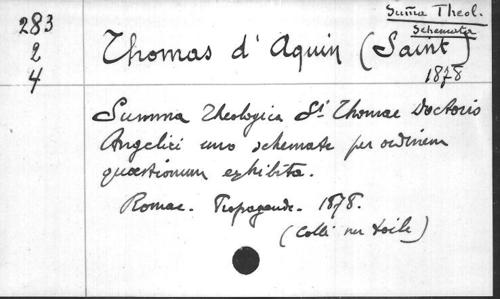 283
2
4
Suma Theol.
Schemata
Thomas d'Aquin (Saint)
1878
Summa Theologica Sti Thomae Doctoris
Angelici uno schemate per ordinem
quaestionum exhibita.
Romae. Propagande. 1878.
(Collé sur toile)